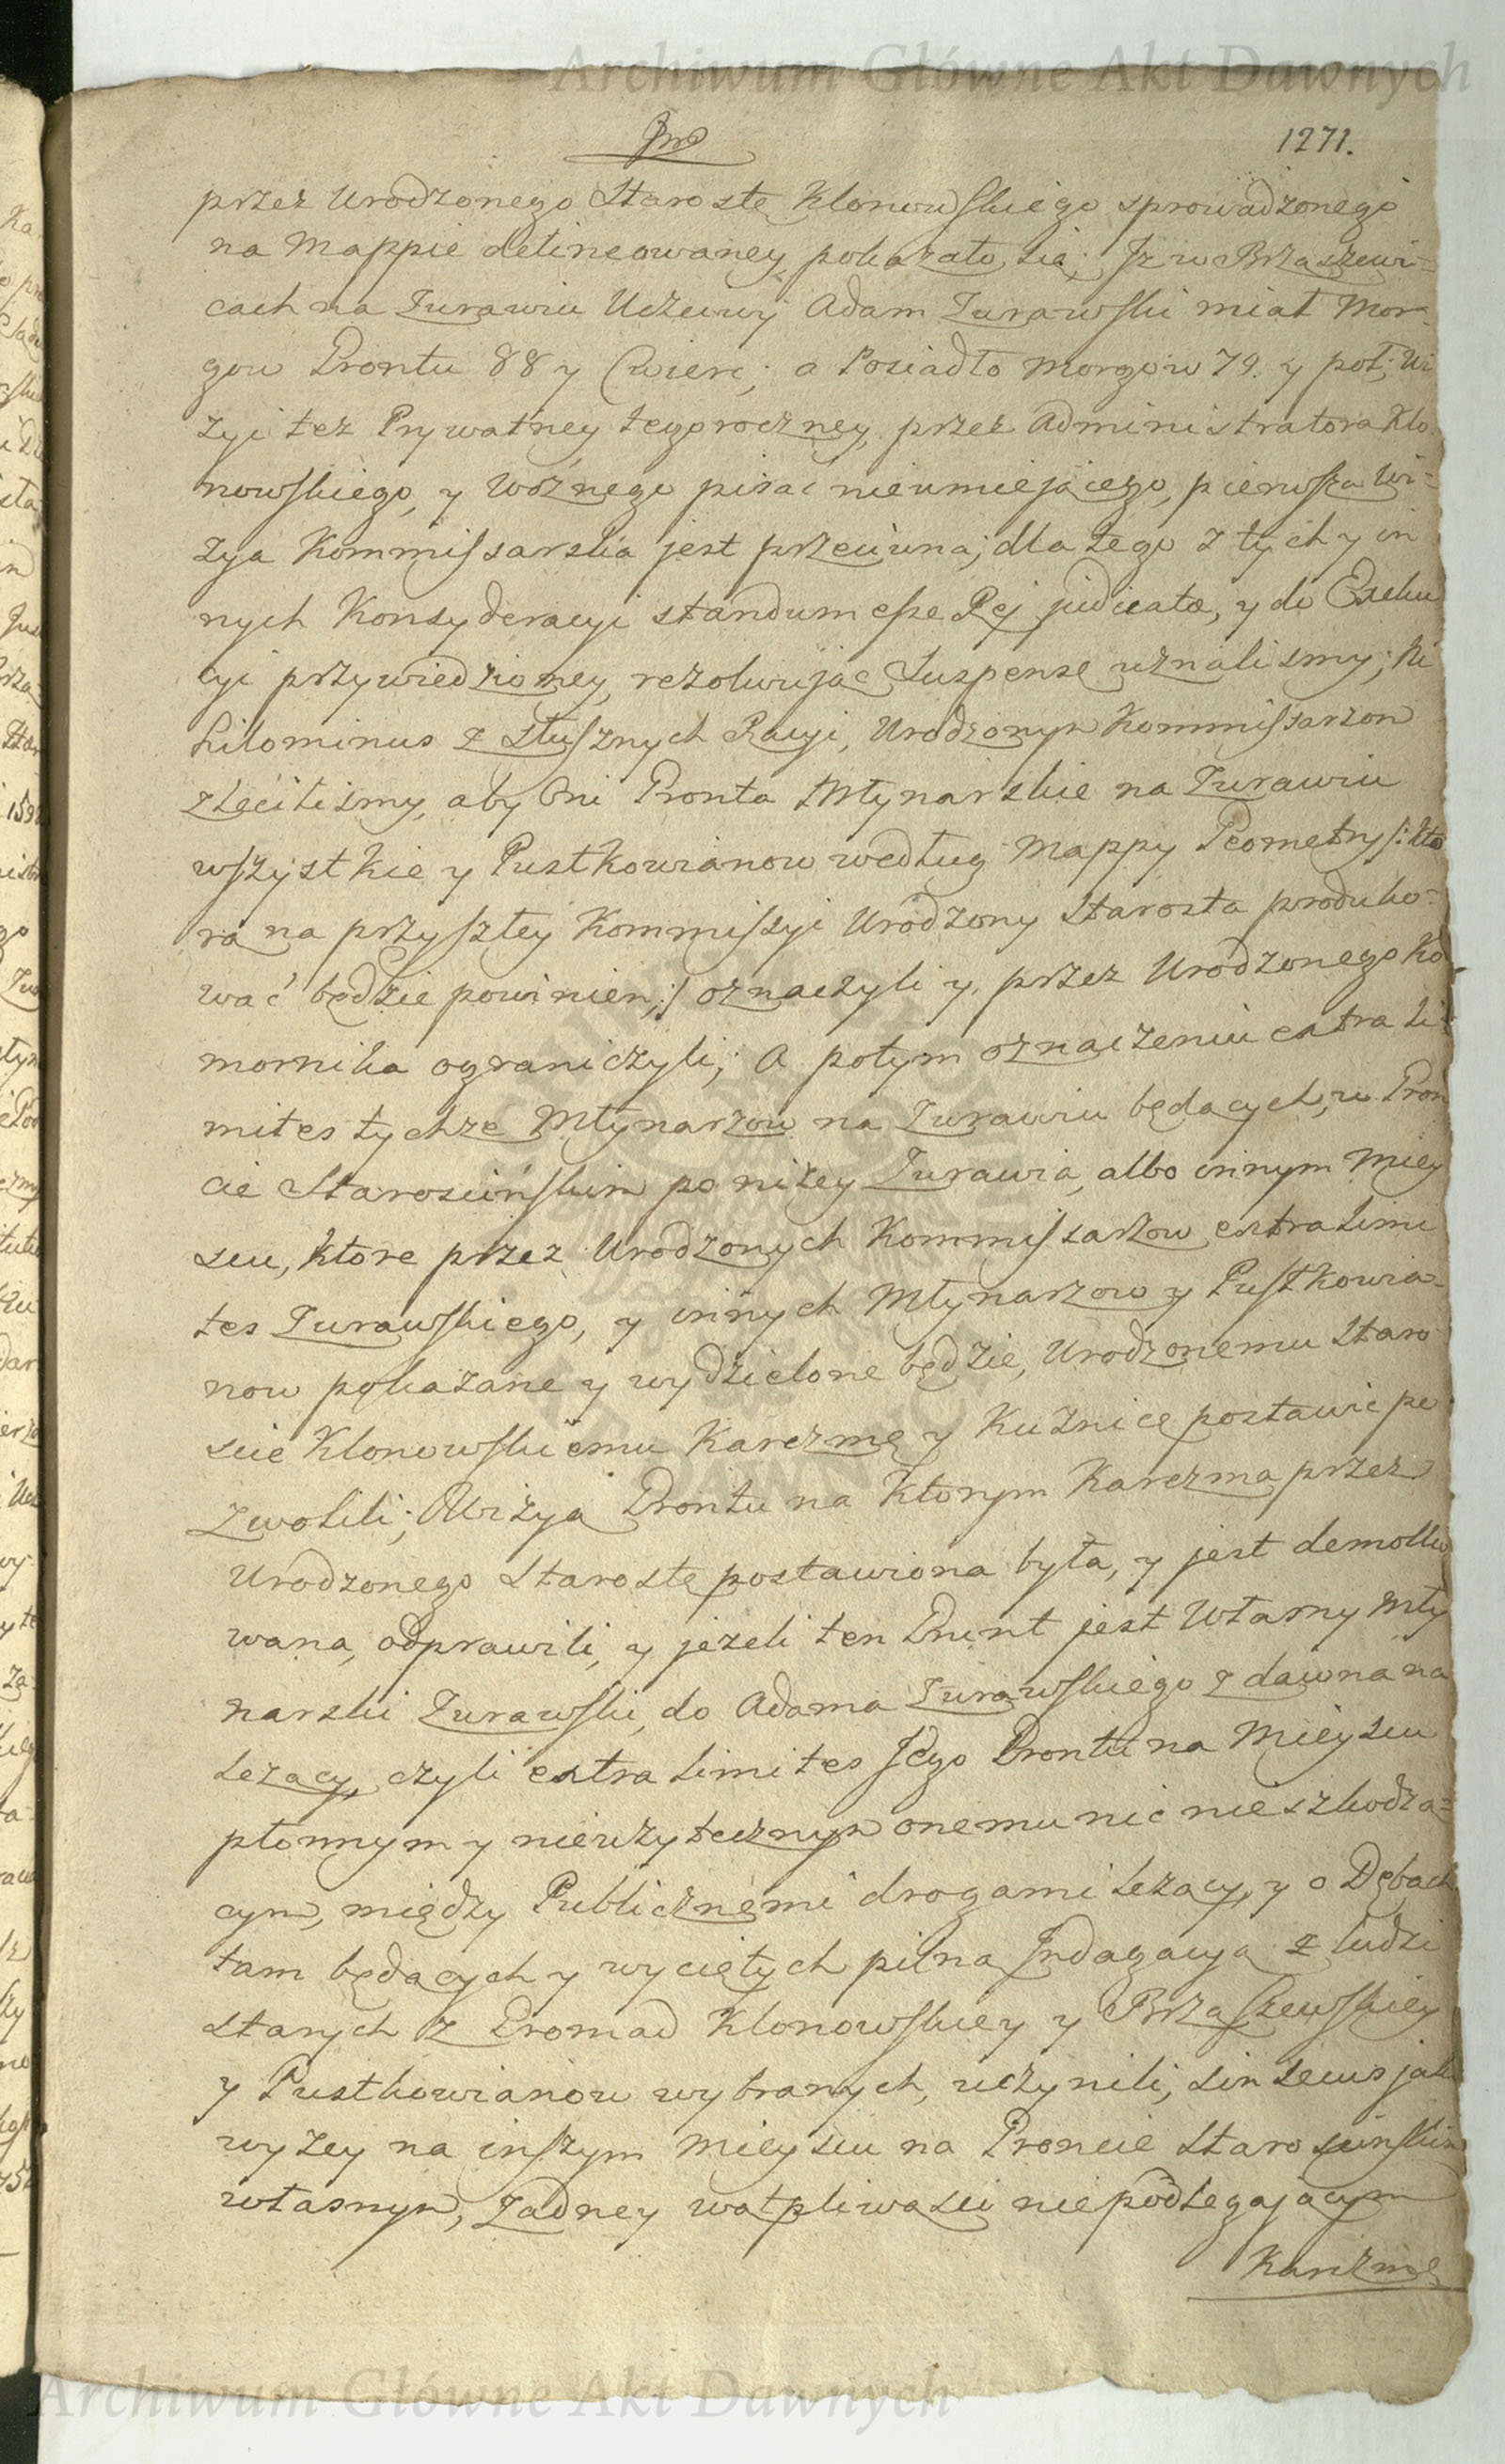 Archiwum Główne Akt Dawnych
1271.
przez Urodzonego Starostę Klonowskiego sprowadzonego
na Mappie delineowaney pokazało się; Iż w Brzaszewi=
cach na Zurawiu Uczciwy Adam Zurawski miał Mor=
gow Grontu 88 y Cwierć; a Posiadło Morgow 79. y poł; Wi
zyi tez Prywatney tegoroczney, przez Administratora Klo
nowskiego, y Woźnego pisać nieumiejącego, pierwsza Wi=
zya Kommissarska jest przeciwna; dla tego z tych y in
nych Konsyderacyi standum esse Rej judicatæ, y do Exeku
cyi przywiedzioney, rezolwując Suspensę uznalismy; Ni
hilominus z słusznych Racyi, Urodzonym Kommissarzom
zleciliśmy, aby Oni Gronta Młynarskie na Zurawiu
wszystkie y Pustkowianow według Mappy Geometry /: kto
ra na przyszłey Kommissyi Urodzony Starosta produko=
wać będzie powinien, :/ oznaczyli y przez Urodzonego Ko
mornika ograniczyli; A potym oznaczeniu extra li
mites tychze Młynarzow na Zurawiu będących, w Gron
cie Staroscińskim poniżey Zurawia, albo innym Miey
scu, ktore przez Urodzonych Kommissarzow extra limi
tes Zurawskiego, y innych Młynarzow y Pustkowia=
now pokazane y wydzielone będzie, Urodzonemu Staro
scie Klonowskiemu Karczmę y Kuźnicę postawić po
zwolili; Wizyą Grontu na ktorym Karczma przez
Urodzonego Starostę postawiona była, y jest demolio
wana, odprawili, y jeżeli ten Grunt jest Własny Mły
narski Zurawski, do Adama Zurawskiego z dawna na
lezący, czyli extra limites Jego Grontu na Mieyscu
płonnym y nieużytecznym onemu nic nieszkodzą=
cym, między Publicznemi drogami leżący, y o Dębach
tam będących y wyciętych pilną Indagacyą z ludzi
starych z Gromad Klonowskiey y Brzaszewskiey
y Pustkowianow wybranych, uczynili, sin secus jak
wyzey na inszym Mieyscu na Groncie Starościńskim
własnym, żadney wątpliwosci niepodlegającym
Karczmę
Archiwum Główne Akt Dawnych